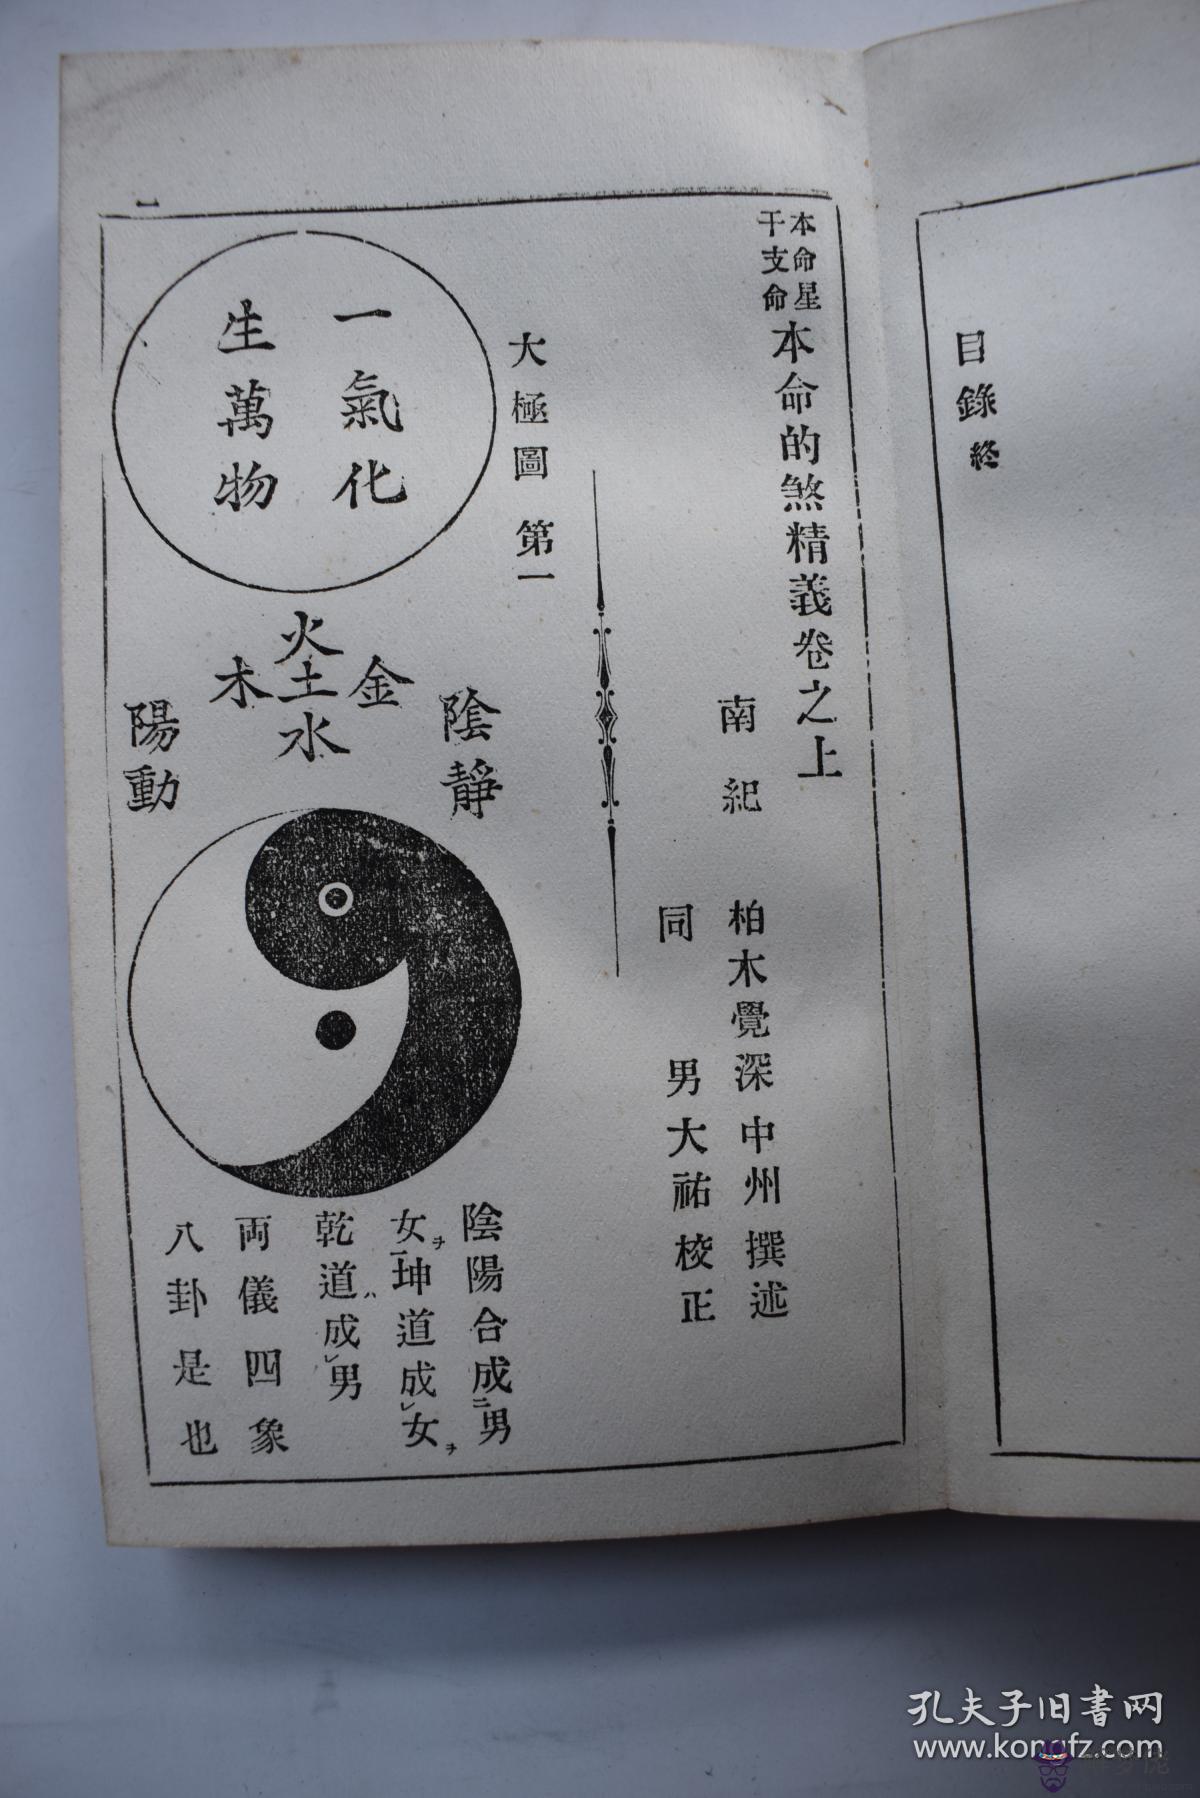 目錄終
本命星
干支命
本命的煞精義卷之上
南紀 柏木覺深中州撰述
同 男大祐校正
大極圖 第一
一氣化
生萬物
火
金土木
水
陰靜
陽動
陰陽合成ニ男
女ヲ一坤道成レ女ヲ
乾道ハ成レ男
両儀四象
八卦是也
一
孔夫子旧書网
www.kongfz.com